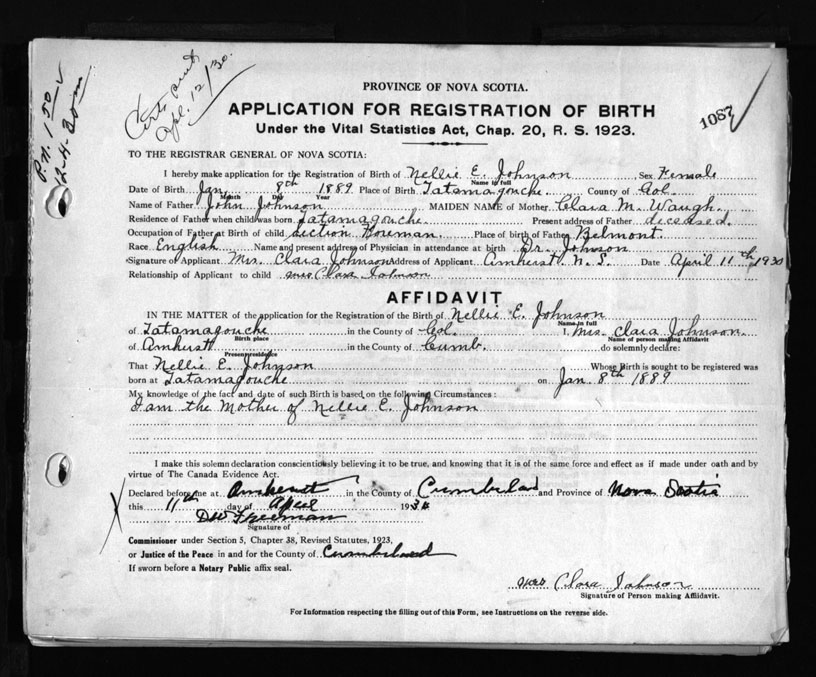 P.N. 1.50
12-4-30
Cert. sent
Apl. 12/30.
1087
PROVINCE OF NOVA SCOTIA.
APPLICATION FOR REGISTRATION OF BIRTH
Under the Vital Statistics Act, Chap. 20, R. S. 1923.
TO THE REGISTRAR GENERAL OF NOVA SCOTIA:
I hereby make application for the Registration of Birth of Nellie E. Johnson Sex Female
Name in full
Date of Birth Jan. 8th 1889 Place of Birth Tatamagouche. County of Col.
Month Day Year
Name of Father John Johnson MAIDEN NAME of Mother Clara M. Waugh.
Residence of Father when child was born Tatamagouche. Present address of Father deceased.
Occupation of Father at Birth of child Section Foreman. Place of birth of Father Belmont.
Race English Name and present address of Physician in attendance at birth Dr. Johnson
Signature of Applicant Mrs. Clara Johnson Address of Applicant Amherst N.S. Date April 11th 1930
Relationship of Applicant to child Mrs Clara Johnson
AFFIDAVIT
IN THE MATTER of the application for the Registration of the Birth of Nellie E. Johnson
Name in full
of Tatamagouche in the County of Col. I, Mrs. Clara Johnson.
Birth place Name of person making Affidavit
of Amherst in the County of Cumb. do solemnly declare:
Present residence
That Nellie E. Johnson Whose Birth is sought to be registered was
born at Tatamagouche on Jan. 8th 1889
My knowledge of the fact and date of such Birth is based on the following Circumstances:
I am the Mother of Nellie E. Johnson
I make this solemn declaration conscientiously believing it to be true, and knowing that it is of the same force and effect as if made under oath and by
virtue of The Canada Evidence Act.
Declared before me at Amherst in the County of Cumberland and Province of Nova Scotia
this 11th day of April 1930
DW Freeman
Signature of
Commissioner under Section 5, Chapter 38, Revised Statutes, 1923,
or Justice of the Peace in and for the County of Cumberland
If sworn before a Notary Public affix seal.
Mrs Clara Johnson
Signature of Person making Affidavit.
For Information respecting the filling out of this Form, see Instructions on the reverse side.